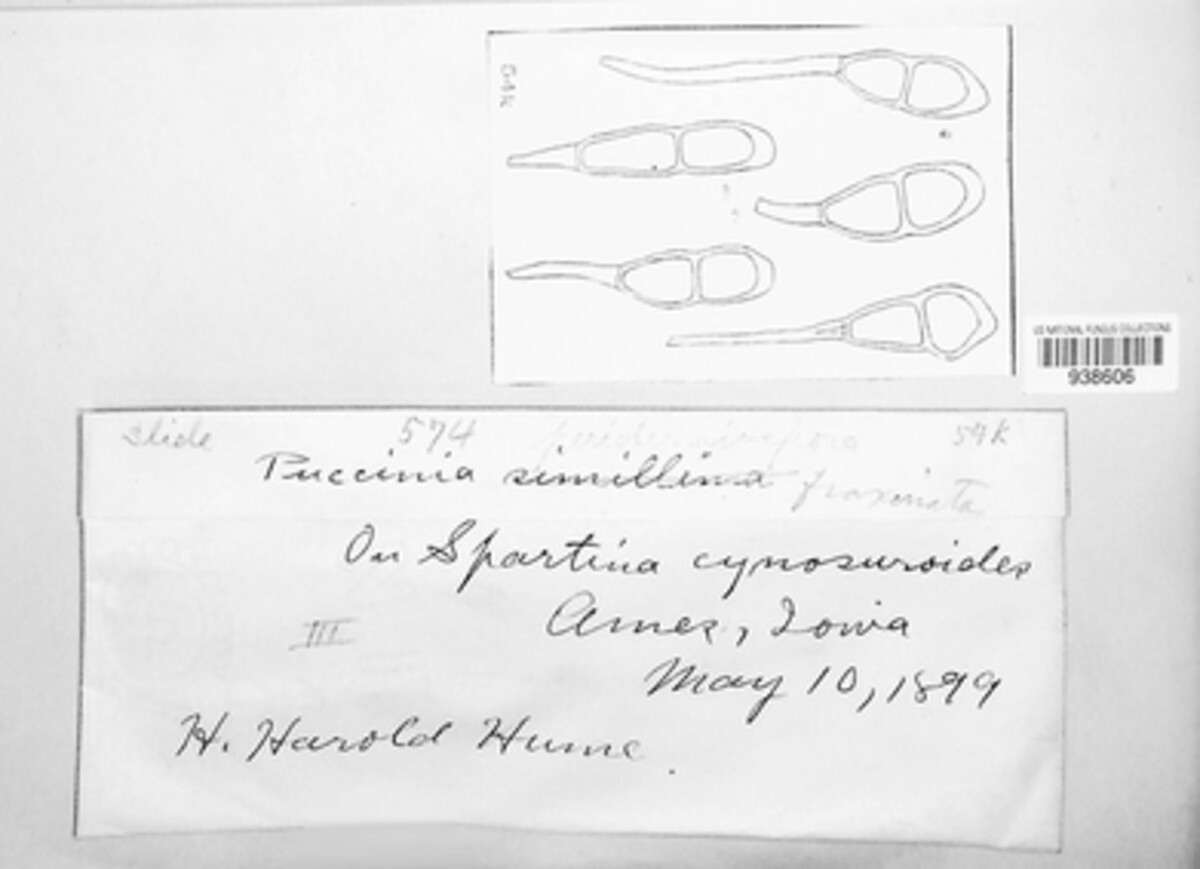 54K
US NATIONAL FUNGUS COLLECTIONS
938606
Slide 574 peridermiospora 54K
Puccinia simillima fraxinata
On Spartina cynosuroides
Ames, Iowa
III
May 10, 1899
H. Harold Hume.